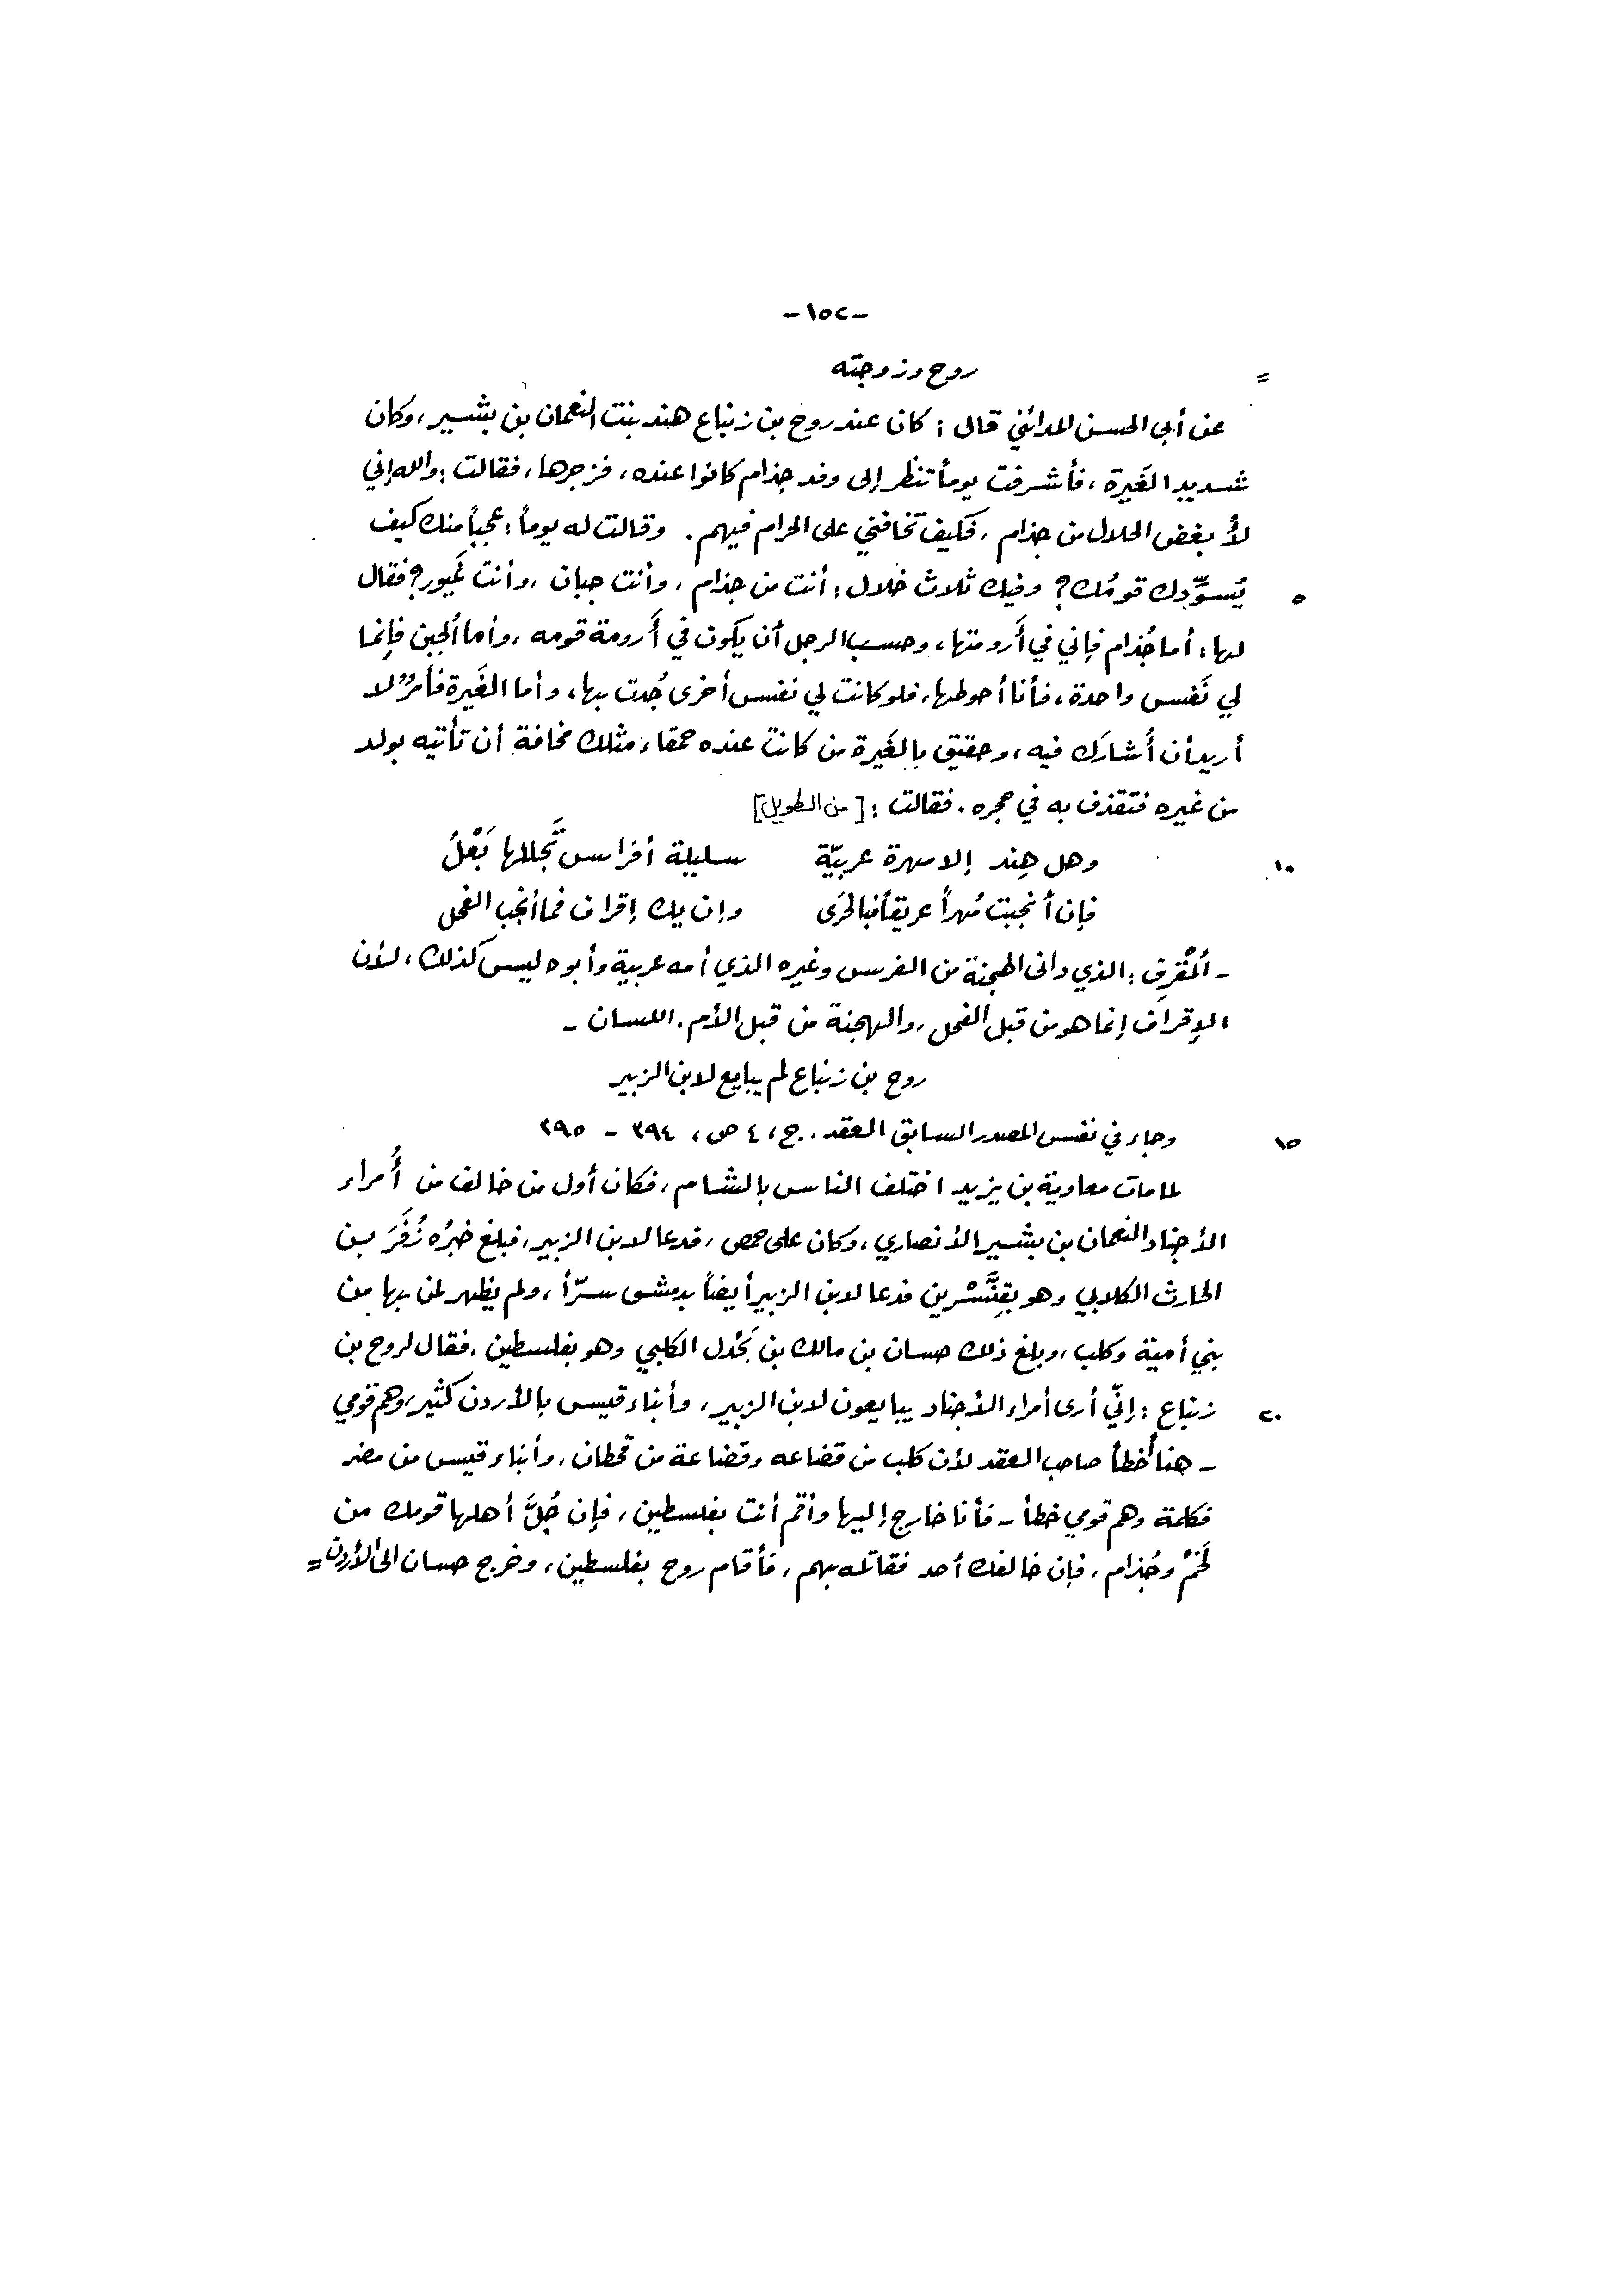 -١٥٢-
= روح وزوجته
عن أبي الحسن المدائني قال : كان عند روح بن زنباع هند بنت النعمان بن بشير ، وكان
شديد الغَيرة ، فأشرفت يوماً تنظر إلى وفد جذام كانوا عنده ، فزجرها ، فقالت : والله إني
لأُبغض الحلال من جذام ، فكيف تخافني على الحرام فيهم . وقالت له يوماً : عجباً منك كيف
٥ يُسوِّدك قومُك ؟ وفيك ثلاث خلال : أنت من جذام ، وأنت جبان ، وأنت غيور ؟ فقال
لها : أما جُذام فإني في أَرومتها ، وحسب الرجل أن يكون في أَرومة قومه ، وأما الجبن فإنما
لي نَفس واحدة ، فأنا أحوطها ، فلو كانت لي نفس أخرى جُدت بها ، وأما الغَيرة فأمرٌ لا
أريد أن أُشارَك فيه ، وحقيق بالغَيرة من كانت عنده حمقاء مثلك مخافة أن تأتيه بولد
من غيره فتقذف به في حجره . فقالت : [من الطويل]
١٠ وهل هِند إلا مهرة عربيّة سليلة أفراس تَجللها بَعْلُ
فإن أنجبت مُهراً عريقاً فبالحَرَى وإن يك إقراف فما أنجب الفحل
- المُقْرِف : الذي دانى الهجنة من الفرس وغيره الذي أمه عربية وأبوه ليس كذلك ، لأن
الإقراف إنما هو من قبل الفحل ، والهجنة من قبل الأم . اللسان -
روح بن زنباع لم يبايع لابن الزبير
١٥ وجاء في نفس المصدر السابق العقد . ج ، ٤ ص ، ٣٩٤ - ٣٩٥
لما مات معاوية بن يزيد اختلف الناس بالشام ، فكان أول من خالف من أُمراء
الأجناد النعمان بن بشير الأنصاري ، وكان على حمص ، فدعا لابن الزبير ، فبلغ خبرُه زُفَرَ بن
الحارث الكلابي وهو بقِنَّسْرين فدعا لابن الزبير أيضاً بدمشق سرّاً ، ولم يظهر لمن بها من
بني أمية وكلب ، وبلغ ذلك حسان بن مالك بن بَحْدل الكلبي وهو بفلسطين ، فقال لروح بن
٢٠ زنباع : إنّي أرى أمراء الأجناد يبايعون لابن الزبير ، وأبناء قيس بالأردن كثير ، وهم قومي
- هنا أخطأ صاحب العقد لأن كلب من قضاعه وقضاعة من قحطان ، وأبناء قيس من مضر
فكلمة وهم قومي خطأ - فأنا خارج إليها وأقم أنت بفلسطين ، فإن جُلَّ أهلها قومك من
لَخمْ وجُذام ، فإن خالفك أحد فقاتله بهم ، فأقام روح بفلسطين ، وخرج حسان الى الأردن =